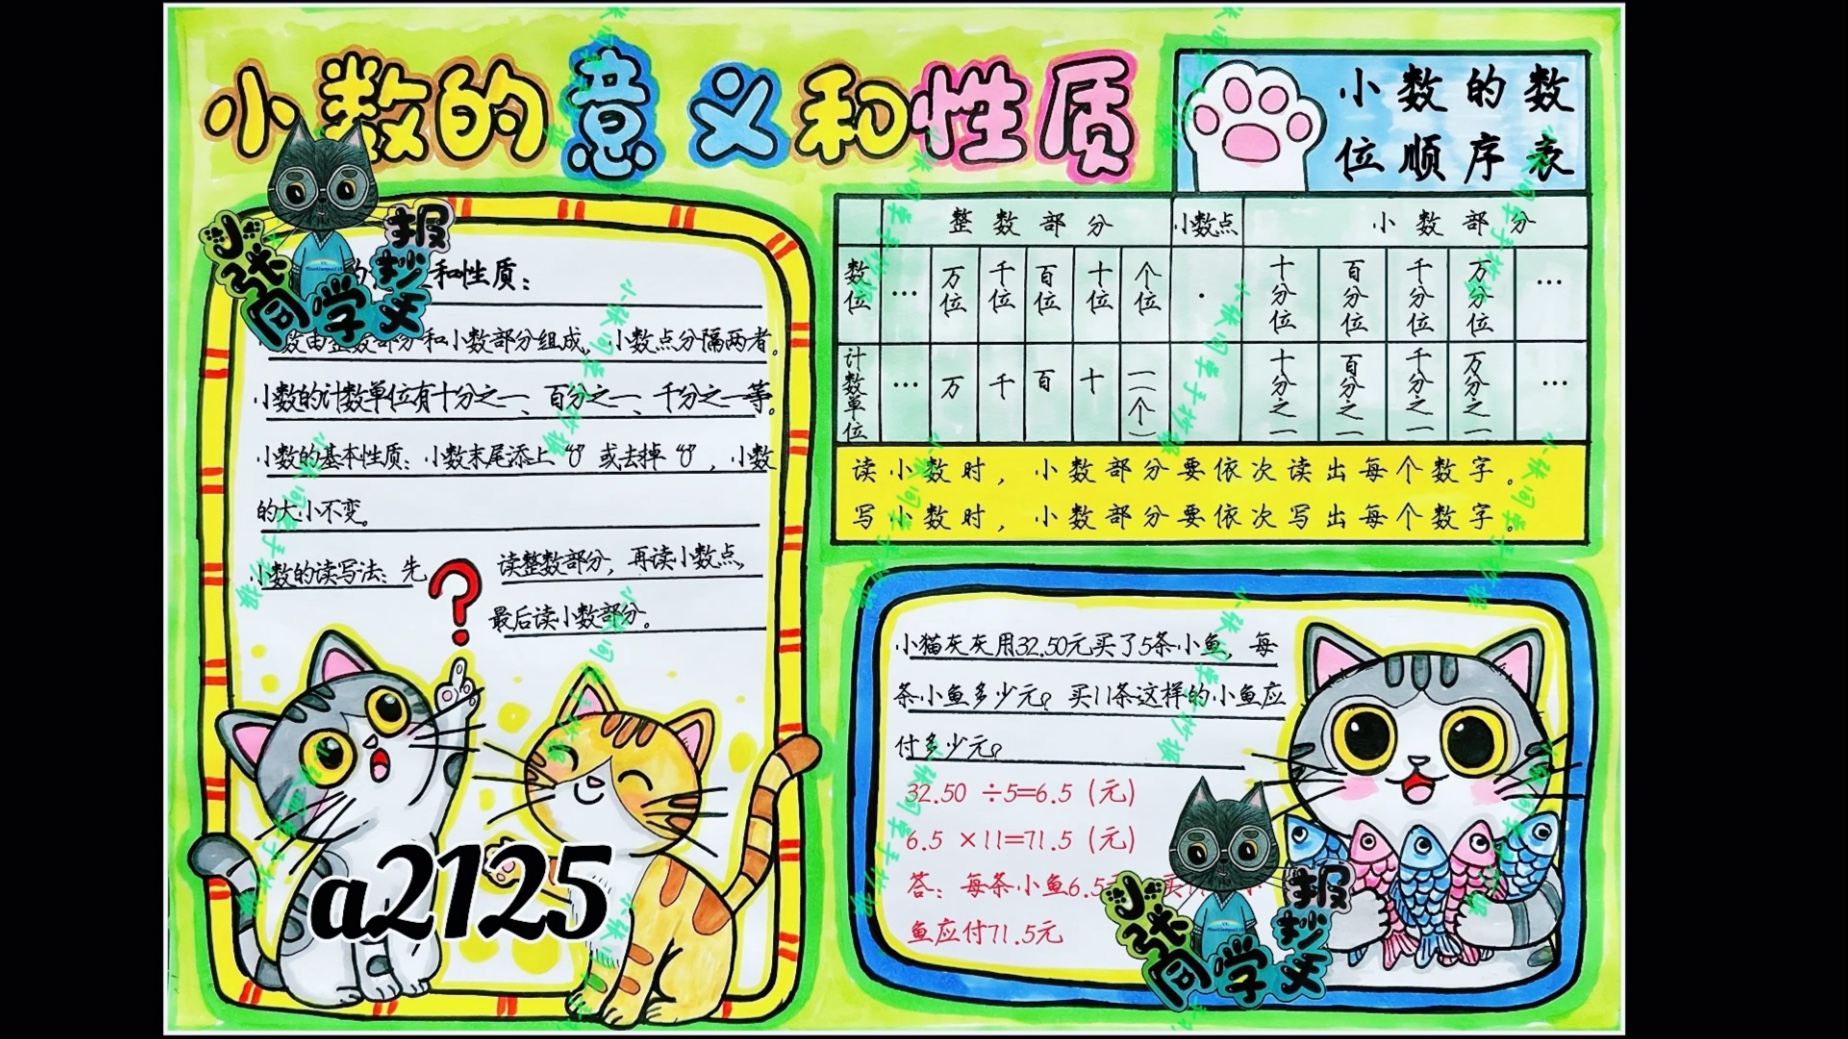 小数的意义和性质
小数的数
位顺序表
和性质：
数由整数部分和小数部分组成，小数点分隔两者。
小数的计数单位有十分之一、百分之一、千分之一等。
小数的基本性质：小数末尾添上“0”或去掉“0”，小数
的大小不变。
小数的读写法：先读整数部分，再读小数点，
最后读小数部分。
整数部分 小数点 小数部分
数位 … 万位 千位 百位 十位 个位 · 十分位 百分位 千分位 万分位 …
计数单位 … 万 千 百 十 一（个） 十分之一 百分之一 千分之一 万分之一 …
读小数时，小数部分要依次读出每个数字。
写小数时，小数部分要依次写出每个数字。
小猫灰灰用32.50元买了5条小鱼，每
条小鱼多少元？买11条这样的小鱼应
付多少元？
32.50÷5=6.5（元）
6.5×11=71.5（元）
答：每条小鱼6.5
鱼应付71.5元
?
a2125
小张同学手抄报
小张同学手抄报